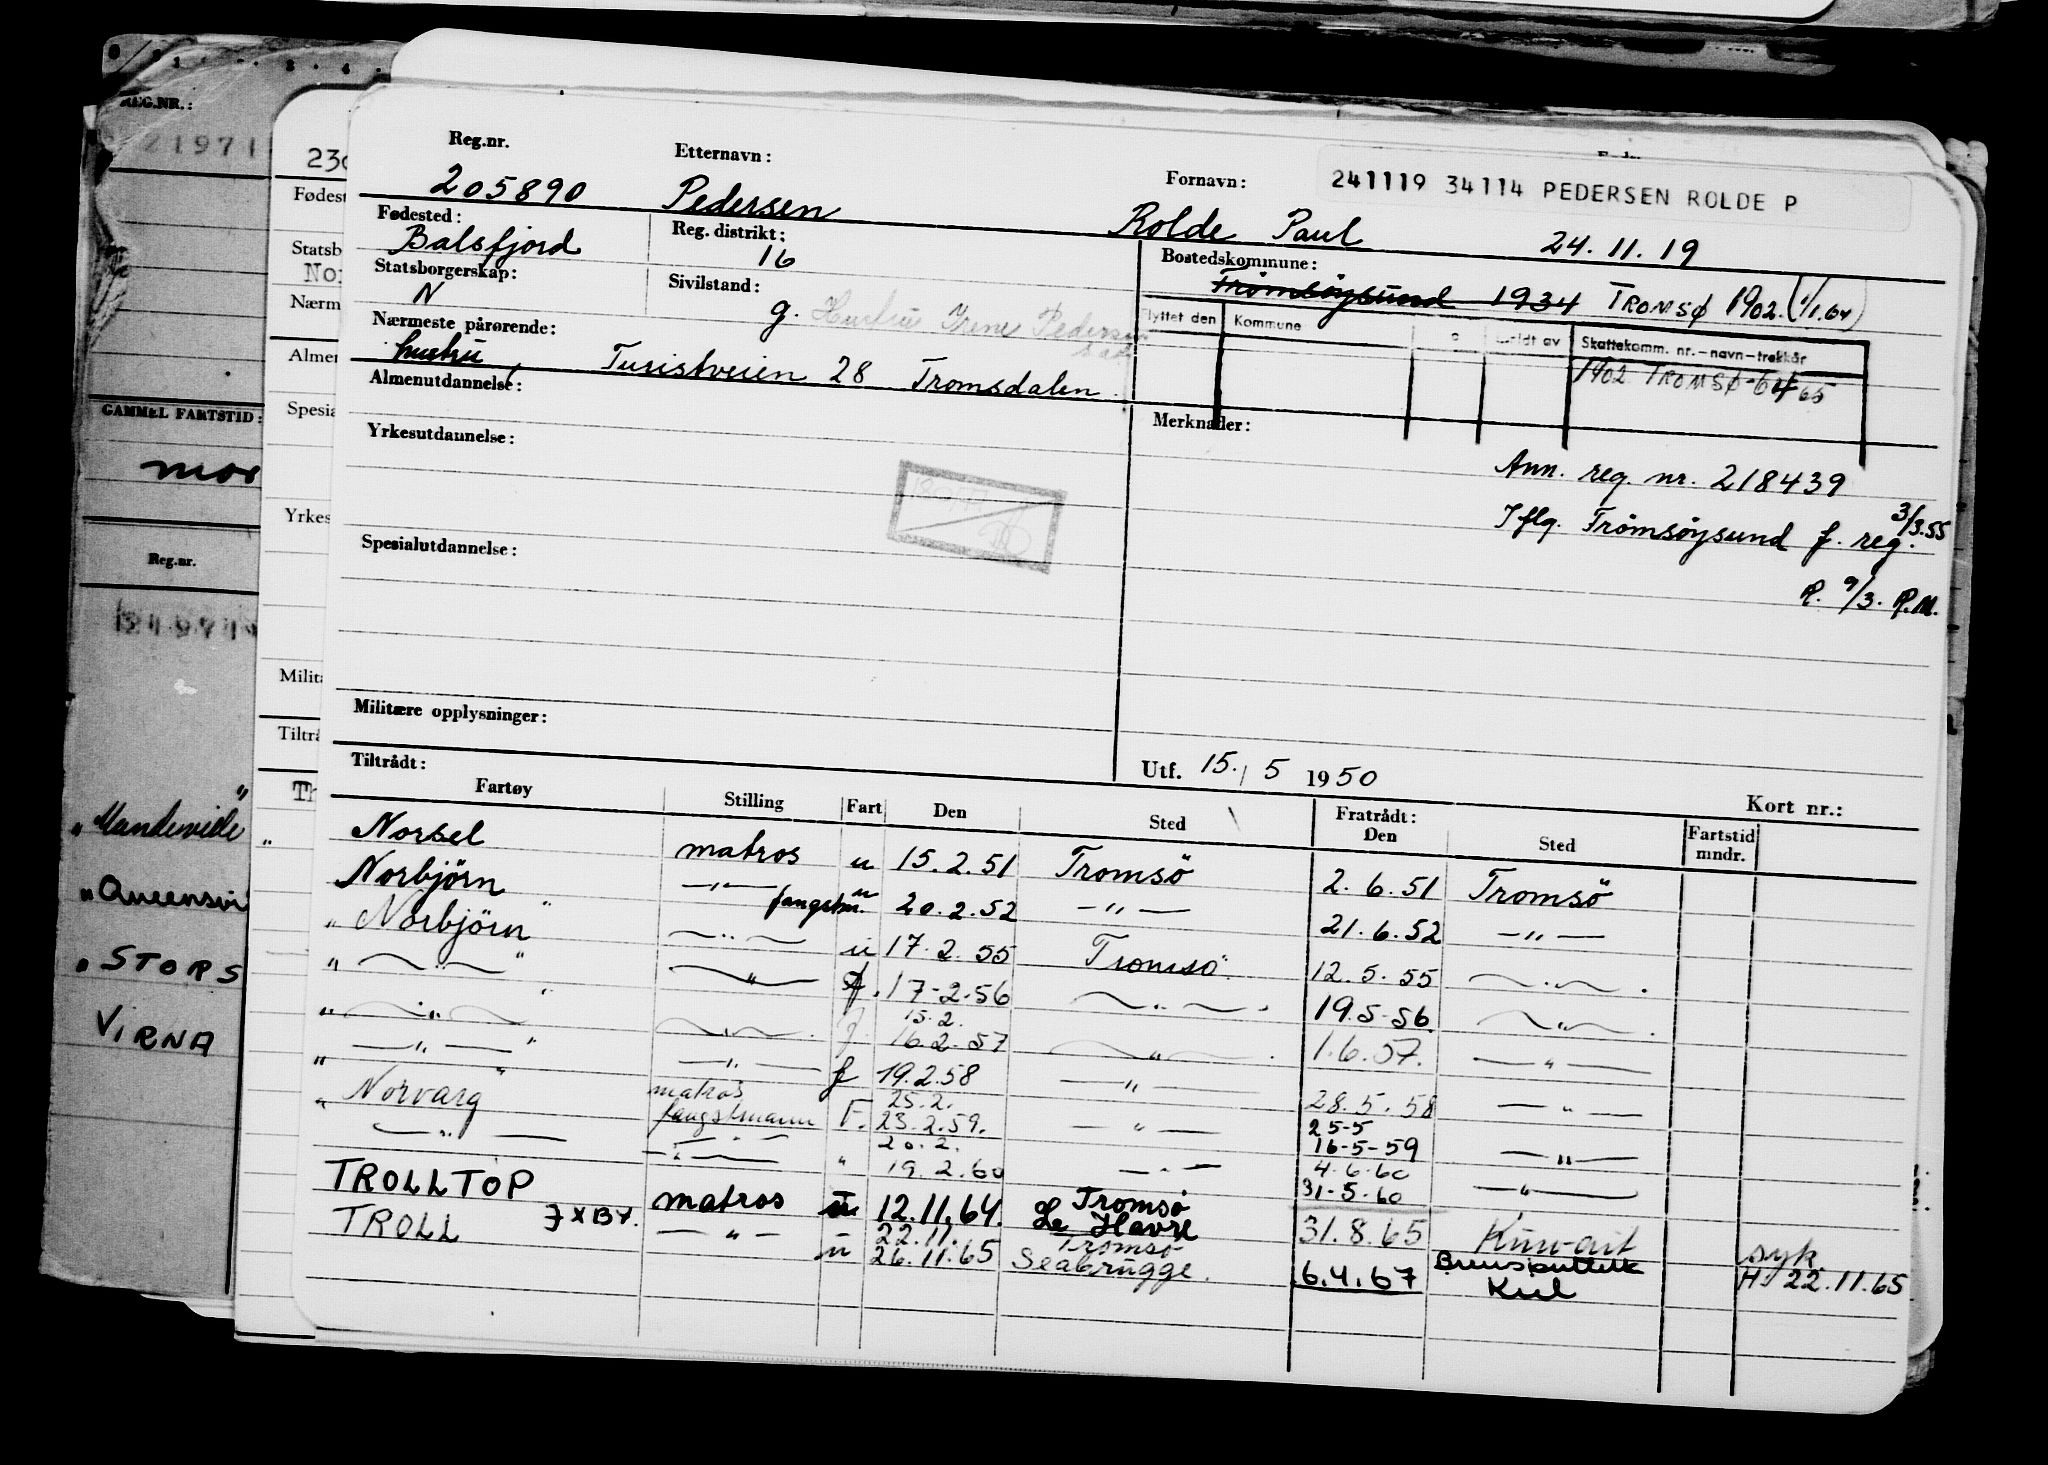 REG.NR.:
21971
GAMMEL FARTSTID:
mor
Reg.nr.
"Mandeville"
"Queensvi
"STORS
VIRNA
230
Fødest
Statsb
Nor
Nærm
Almen
Spesia
Yrkes
Milita
Tiltrå
Th
Reg.nr. Etternavn: Fornavn: 241119 34114 PEDERSEN ROLDE P
205890 Pedersen Rolde Paul 24.11.19
Fødested: Reg. distrikt: Bostedskommune:
Balsfjord 16 Tromsøysund 1934 TROMSØ 1902. (1/1.64)
Statsborgerskap: Sivilstand: Flyttet den Kommune Meldt av Skattekomm. nr.-navn-trekkår
N g. Hustru Irene Pedersen 1902 TROMSØ-64 65
Nærmeste pårørende:
hustru, Turistveien 28 Tromsdalen.
Almenutdannelse: Merknader:
Yrkesutdannelse: Ann. reg. nr. 218439
Iflg. Tromsøysund f. reg. 3/3.55
Spesialutdannelse: R. 9/3. R.M.
Militære opplysninger:
Tiltrådt: Utf. 15./5 1950 Kort nr.:
Fartøy Stilling Fart Den Sted Fratrådt: Den Sted Fartstid mndr.
Norsel matros u 15.2.51 Tromsö 2.6.51 Tromsö
Norbjörn —"— fangstm. u 20.2.52 —"— 21.6.52 —"—
"Norbjörn" —"— u 17.2.55 Tromsö 12.5.55 —"—
" —"— " —"— f. 17-2-56 —"— 19.5-56 —"—
" —"— " —"— f. 15.2. 16.2.57 —"— 1.6.57. —"—
" —"— " —"— f 19.2.58 —"— 28.5.58 —"—
" Norvarg " matros fangstmann F. 25.2. 23.2.59. —"— 25-5 16-5-59 —"—
—"— —"— " 20.2. 19.2.60 —"— 4.6.60 31-5-60 —"—
TROLLTOP matros u 12.11.64. Tromsø Le Havre 31.8.65 Kuwait syk
TROLL JXBY. —"— u 22.11. 26.11.65 Tromsø Seabrugge. 6.4.67 Brunsbuttel Kiel H 22.11.65